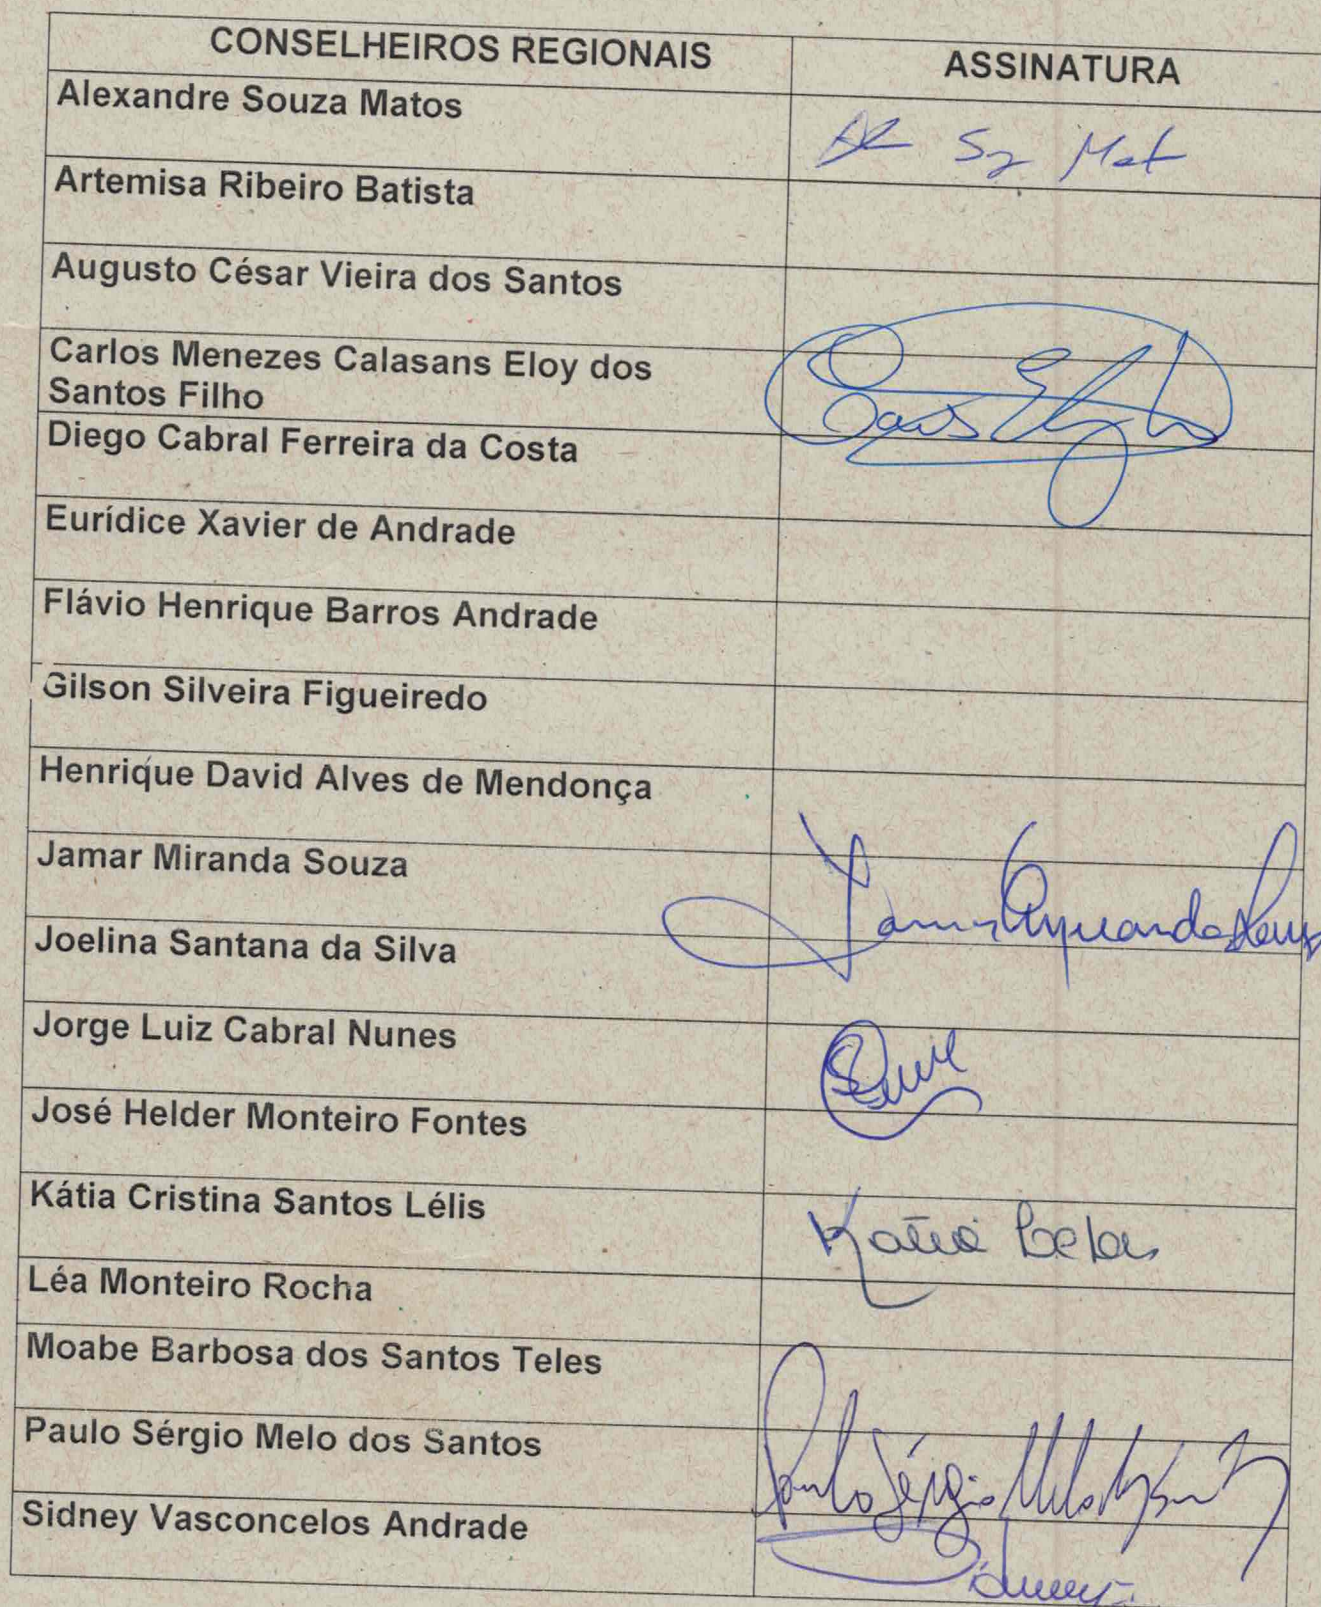 CONSELHEIROS REGIONAIS ASSINATURA
Alexandre Souza Matos
Artemisa Ribeiro Batista
Augusto César Vieira dos Santos
Carlos Menezes Calasans Eloy dos
Santos Filho
Diego Cabral Ferreira da Costa
Eurídice Xavier de Andrade
Flávio Henrique Barros Andrade
Gilson Silveira Figueiredo
Henrique David Alves de Mendonça
Jamar Miranda Souza
Joelina Santana da Silva
Jorge Luiz Cabral Nunes
José Helder Monteiro Fontes
Kátia Cristina Santos Lélis Kátia
Léa Monteiro Rocha
Moabe Barbosa dos Santos Teles
Paulo Sérgio Melo dos Santos Paulo Sérgio Melo
Sidney Vasconcelos Andrade Sidney